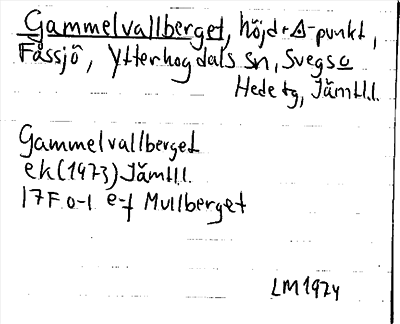 Gammelvallberget, höjd+Δ-punkt,
Fåssjö, Ytterhogdals sn, Svegs
Hede tg, Jämtl.l.
Gammelvallberget
ek(1973) Jämtl.l.
17F 0-1 e-f Mullberget
LM 1974